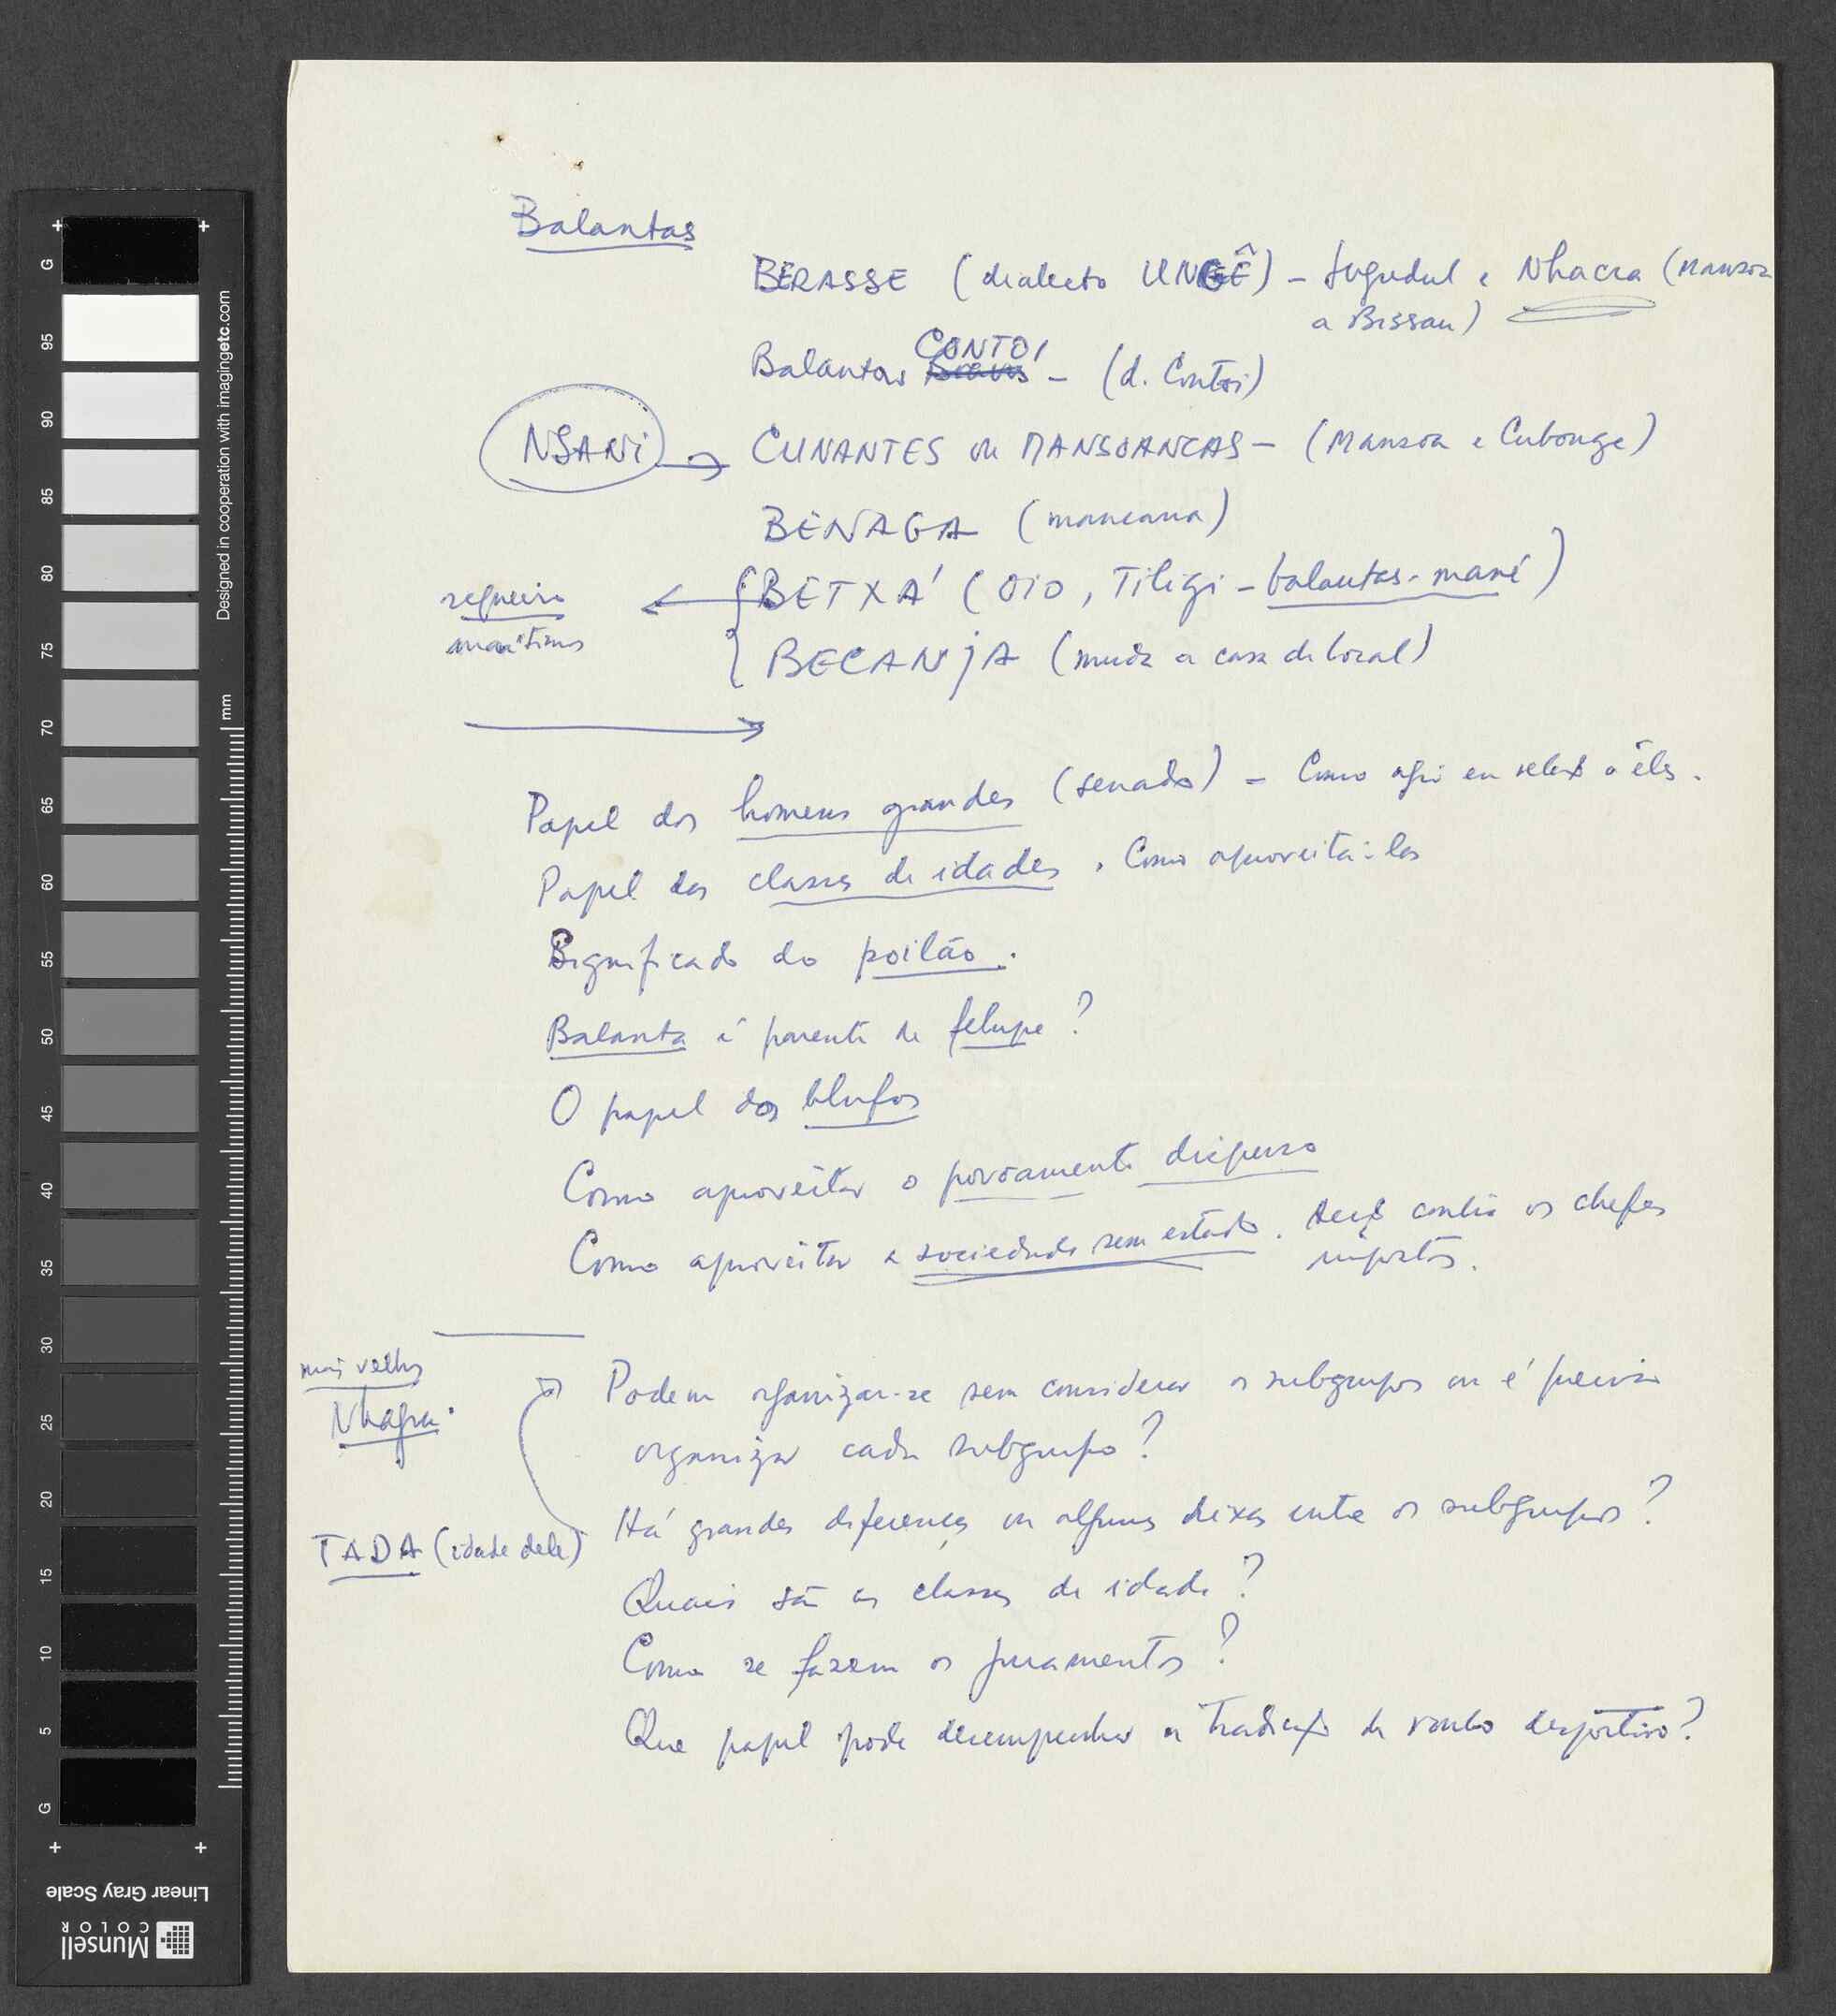 Balantas
BERASSE (dialecto UNGÊ) – Jugudul e Nhacra (Mansoa
a Bissau)
CONTOI
Balantas Bravos – (d. Contoi)
NSANI → CUNANTES ou MANSOANCAS – (Mansoa e Cubonge)
BENAGA (mancana)
BETXA' (OIO, Tiligi – balantas-mané)
BECANJA (muda a casa de local)
Papel dos homens grandes (senado) – Como agir em relação a êles.
Papel das classes de idades. Como aproveitá-las
Significado do poilão.
Balanta é parente de felupe?
O papel dos blufos
Como aproveitar o povoamento disperso
Como aproveitar a sociedade sem estado. contra os chefes
impostos.
mais velhos
TADA (idade dele)
Podem organizar-se sem considerar os subgrupos ou é preciso
organizar cada subgrupo?
Há grandes diferenças ou algumas deixas entre os subgrupos?
Quais são as classes de idade?
Como se fazem os juramentos?
Que papel pode desempenhar a tradição de roubo desportivo?
Designed in cooperation with imagingetc.com
mm
G
95
90
85
80
75
70
65
60
55
50
45
40
35
30
25
20
15
10
5
G
Linear Gray Scale
Munsell
COLOR